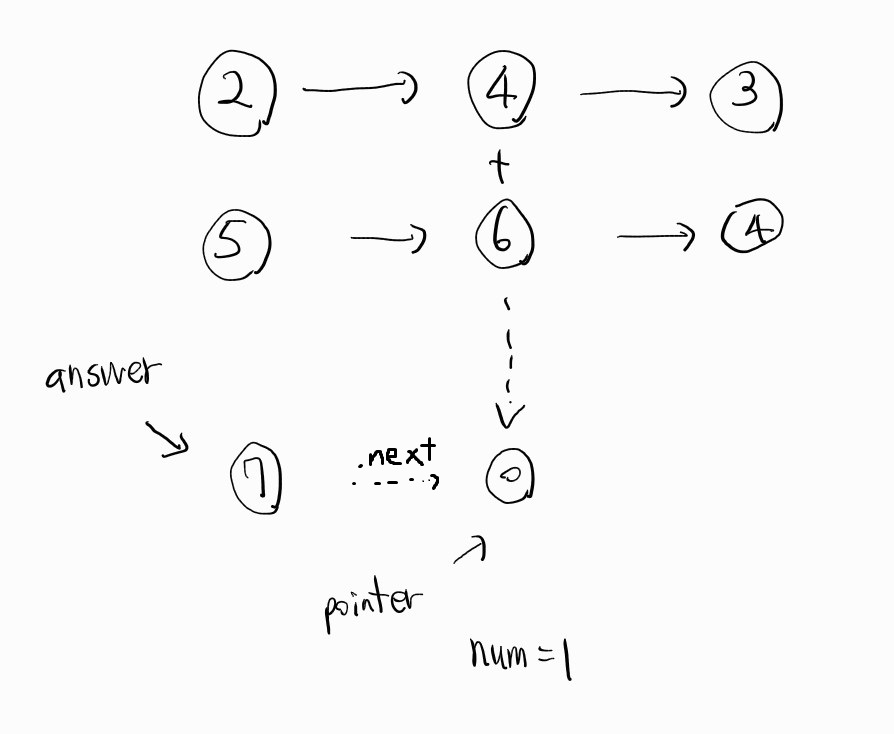 2 → 4 → 3
+
5 → 6 → 4
answer
7 .next 0
pointer
num = 1